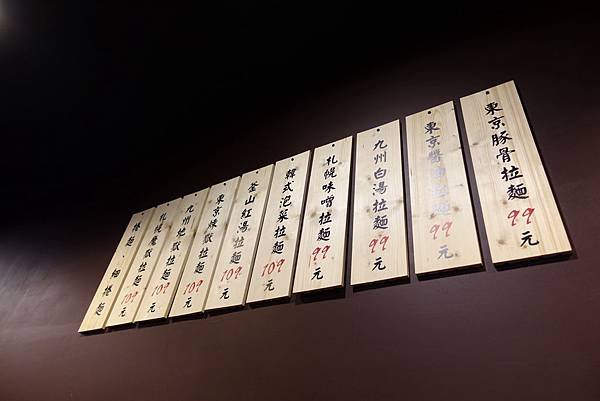 東京豚骨拉麵 99元
東京醬油拉麵 99元
九州白湯拉麵 99元
札幌味噌拉麵 99元
韓式泡菜拉麵 109元
釜山紅湯拉麵 109元
東京煉獄拉麵 109元
九州地獄拉麵 109元
札幌魔獄拉麵 109元
細捲麵